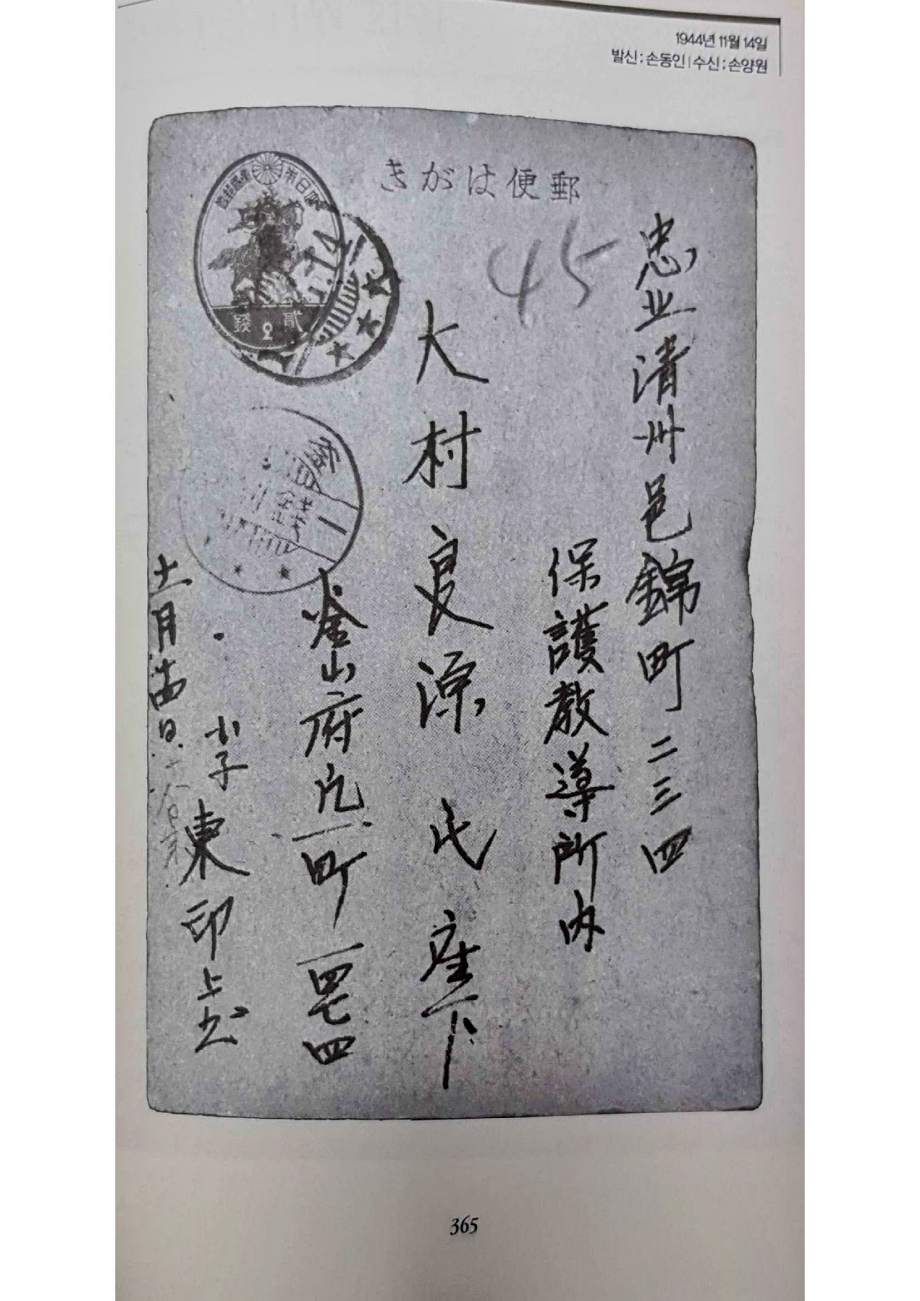 1944년 11월 14일
발신 : 손동인 | 수신 : 손양원
郵便はがき
大日本帝國郵便
貳錢
2
14
45
忠北清州邑錦町二三四
保護教導所内
大村良源氏座下
釜山府凡一町一四七四
小子 東印上書
十一月 日
壹錢
365